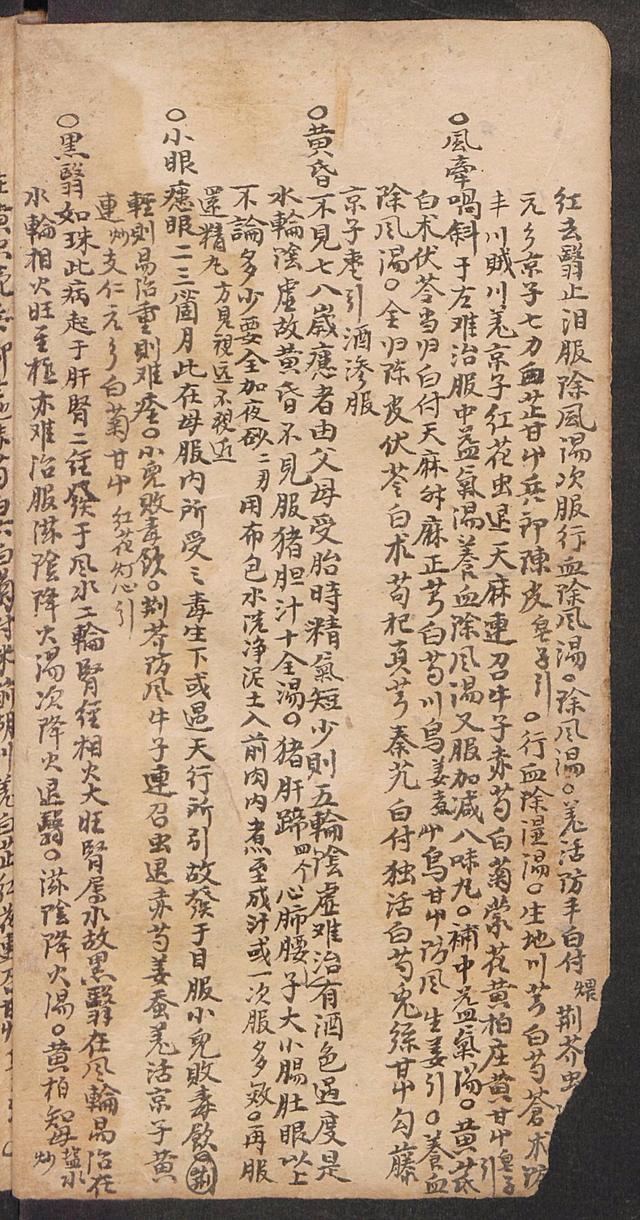 红去翳止泪服除風湯次服行血除風湯○除風湯○羌活防丰白付煨荆芥虫
元参京子七力白芷甘艸兵郎陳皮皂子引○行血除濕湯○生地川芎白芍蒼术防
丰川賊川羌京子红花虫退天麻連召牛子赤芍白菊蒙花黄柏庄黄甘艸皂子引
○風牽喎斜于左难治服中益氣湯養血除風湯又服加减八味丸○補中益氣湯○黄芪
白术伏苓当归白付天麻升麻正芎白芍川烏姜蚕艸烏甘艸防風生姜引○養血
除風湯○全归陈皮伏苓白术苟杞真芎秦艽白付独活白芍兔絲甘艸勾藤
京子枣引酒滲服
○黄昏不見七八歲癔者由父母受胎時精氣短少則五輪陰虚难治有酒色過度是
水輪陰虚故黄昏不見服猪胆汁十全湯○猪肝蹄四个心肺腰子大小腸肚眼以上
不論多少要全加夜砂二刃用布包水洗净泥土入前肉内煮至成汁或一次服多效○再服
還精丸方見視远不視近
○小眼癔眼二三箇月此在母服内所受之毒生下或遇天行所引故發于目服小兒敗毒飲○荆
輕則易治重則难痊○小兒敗毒飲○荆芥防風牛子連召虫退赤芍姜蚕羌活京子黄
連炒支仁元参白菊甘艸红花灯心引
○黑翳如珠此病起于肝腎二經發于風水二輪腎經相火大旺腎属水故黑翳在風輪易治在
水輪相火旺至極亦难治服滋陰降火湯次降火退翳○滋陰降火湯○黄柏知母盐水炒